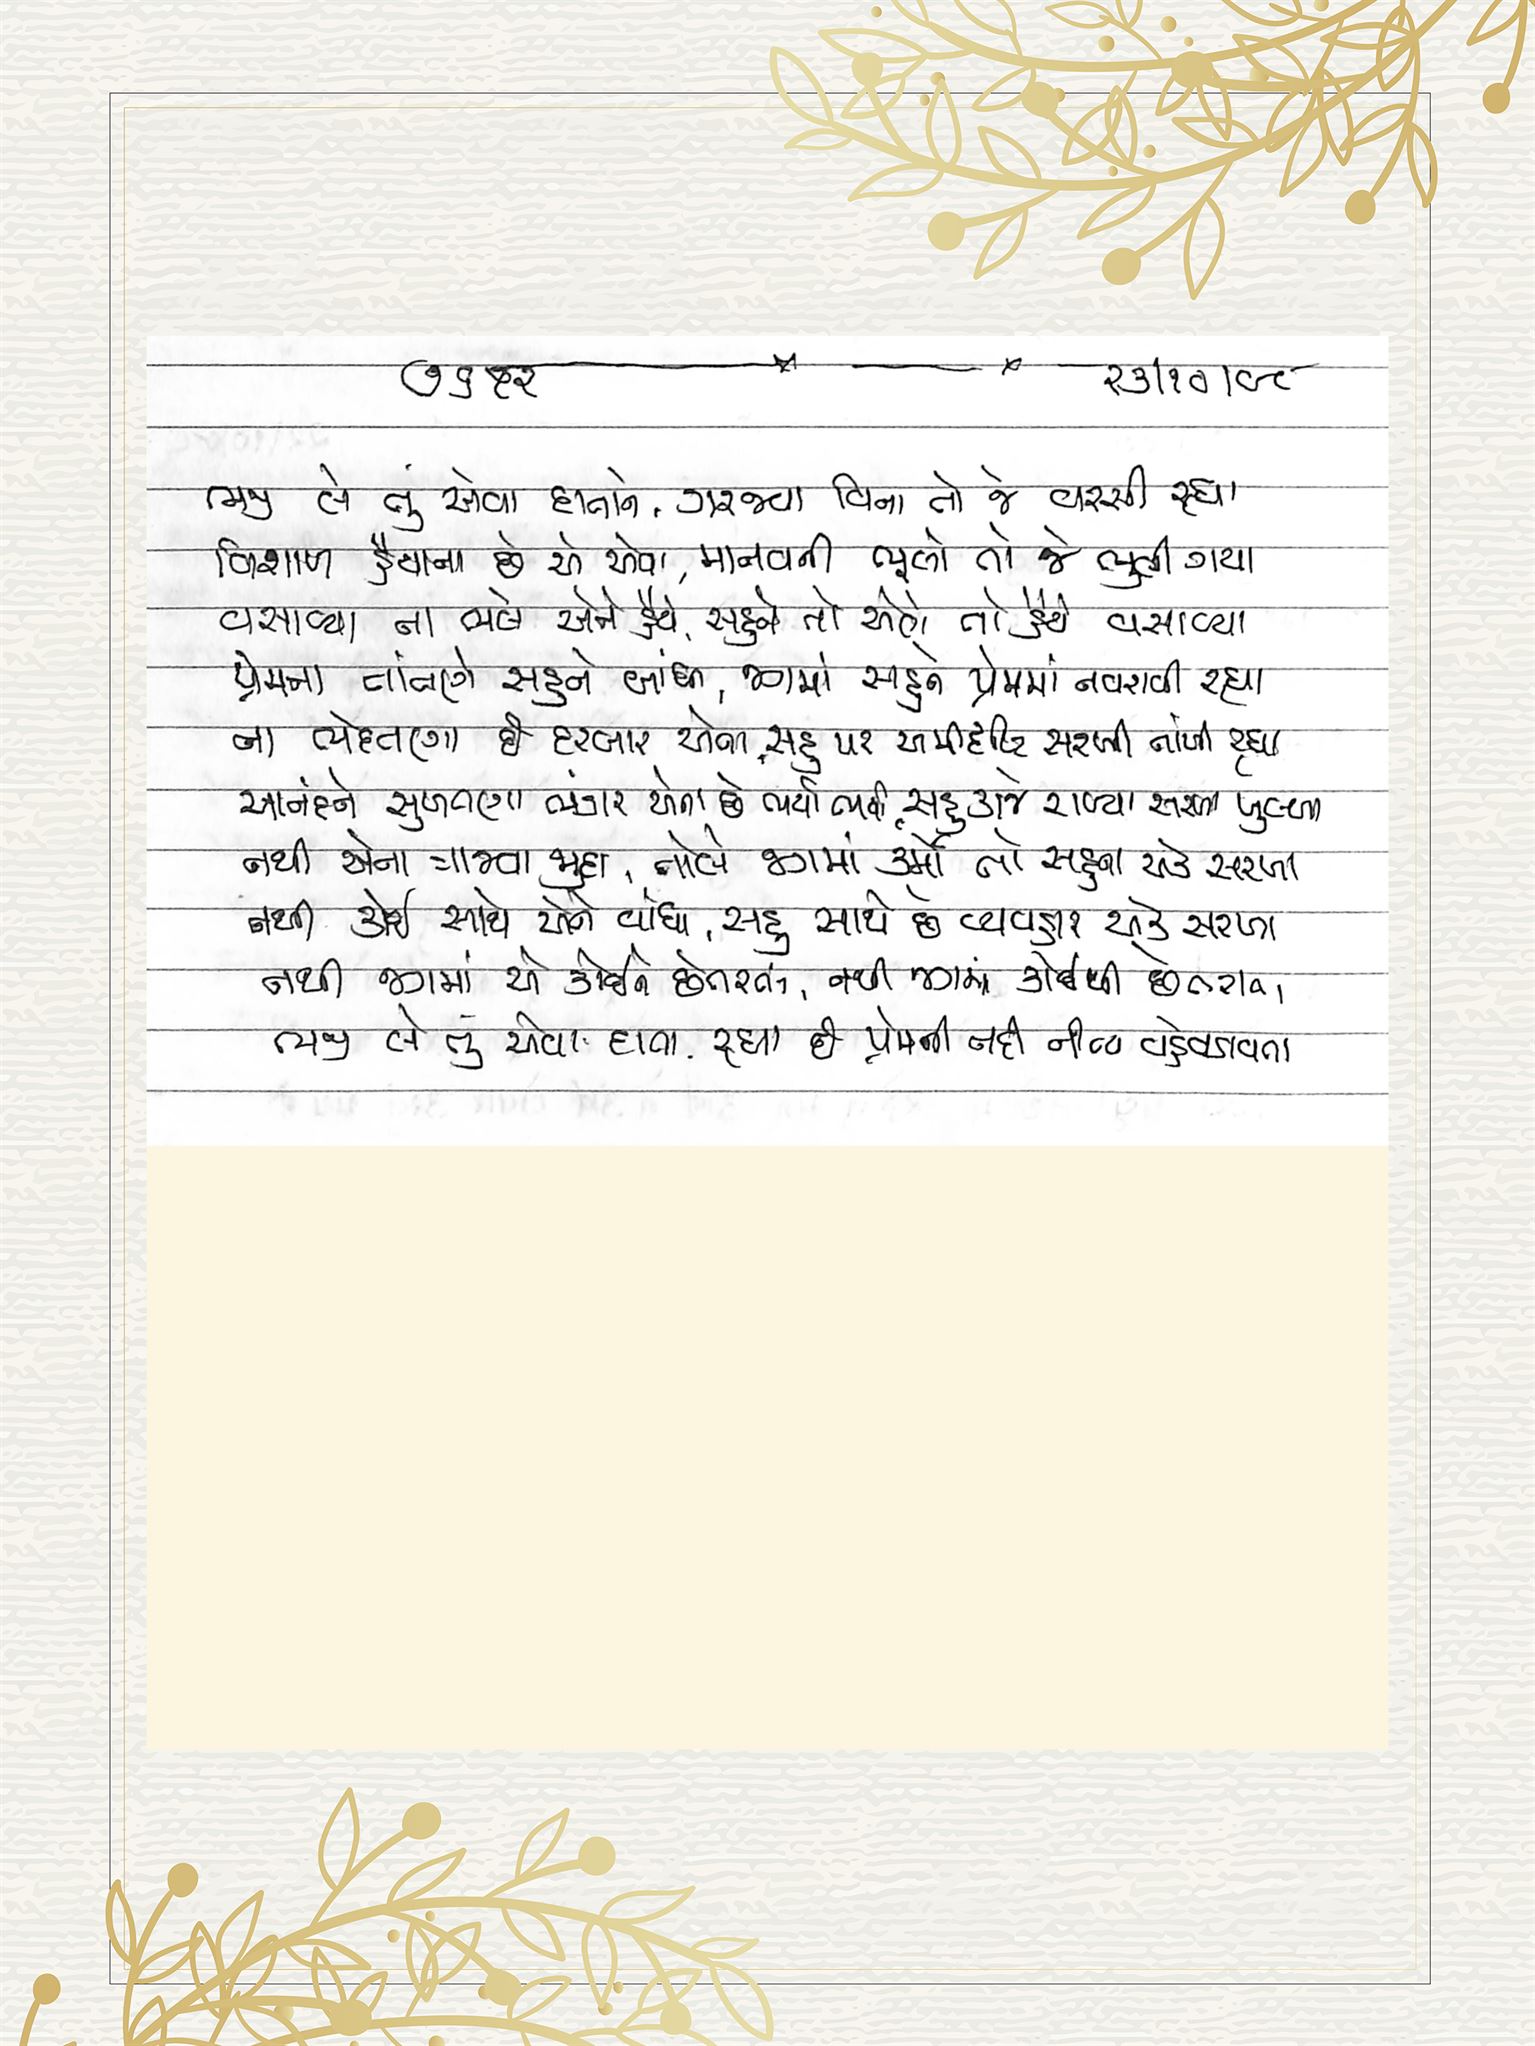 ૭૬૪૨ ૨૩/૧૦/૯૮
ભજી લે તું એવા દાતાને, ગરજ્યા વિના તો જે વરસી રહ્યા
વિશાળ હૈયાના છે એ એવા, માનવની ભૂલો તો જે ભુલી ગયા
વસાવ્યા ના ભલે એને હૈયે, સહુને તો એણે તો હૈયે વસાવ્યા
પ્રેમના તાંતણે સહુને બાંધી, જગમાં સહુને પ્રેમમાં નવરાવી રહ્યા
ના ભેદતણો છે દરબાર એના, સહુ પર અમીદૃષ્ટિ સરખી નાંખી રહ્યા
આનંદને સુખતણા ભંડાર એના છે ભર્યા ભર્યા, સહુ કાજે રાખ્યા સરખા ખુલ્લા
નથી એના ત્રાજવા જુદા, તોલે જગમાં કર્મો તો સહુના એકે સરખા
નથી કોઈ સાથે એને વાંધા, સહુ સાથે છે વ્યવહાર એકે સરખા
નથી જગમાં એ કોઈને છેતરતા, નથી જગમાં કોઈથી છેતરાતા
ભજી લે તું એવા દાતા, રહ્યા છે પ્રેમની નદી નીત્ય વહેવડાવતા